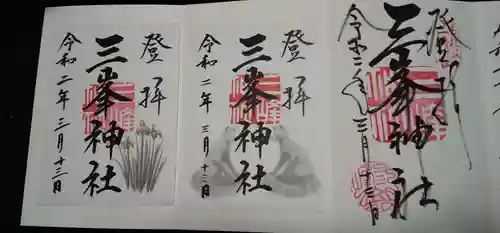 登拝
三峯神社
令和二年三月十三日
登拝
三峯神社
令和二年三月十三日
登拝
三峯神社
令和二年三月十三日